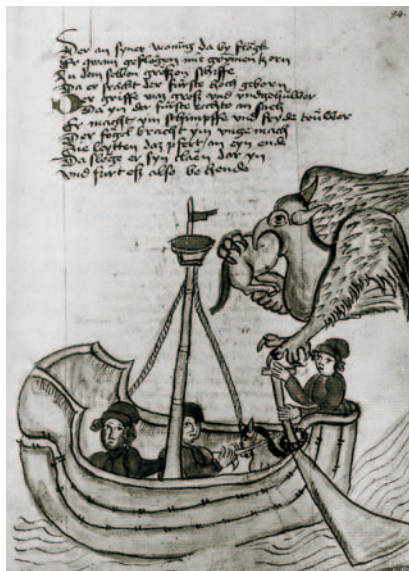 94.
Der an syner wonung da by flögk
Er qwam geflogen mit grymen tzorn
Zu dem selben grossen schiffe
Da er der fürste hoch geborn
Der griffe was groß vnd vngehüwer
Da yn der fürste rechte an sach
Er macht ym schimpffe vnd freyde tüwer
Der fogel bracht ym vnge mach
Sie leytten daz pfert an eyn end
Da sloge er syn claen dar yn
vnd furt eß also be hende